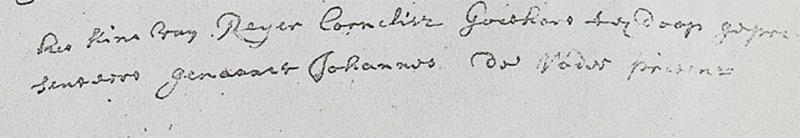 het kint van Reyer Cornelisz Goekoer ten doop gepre
senteert genaamt Johannes De Vader present